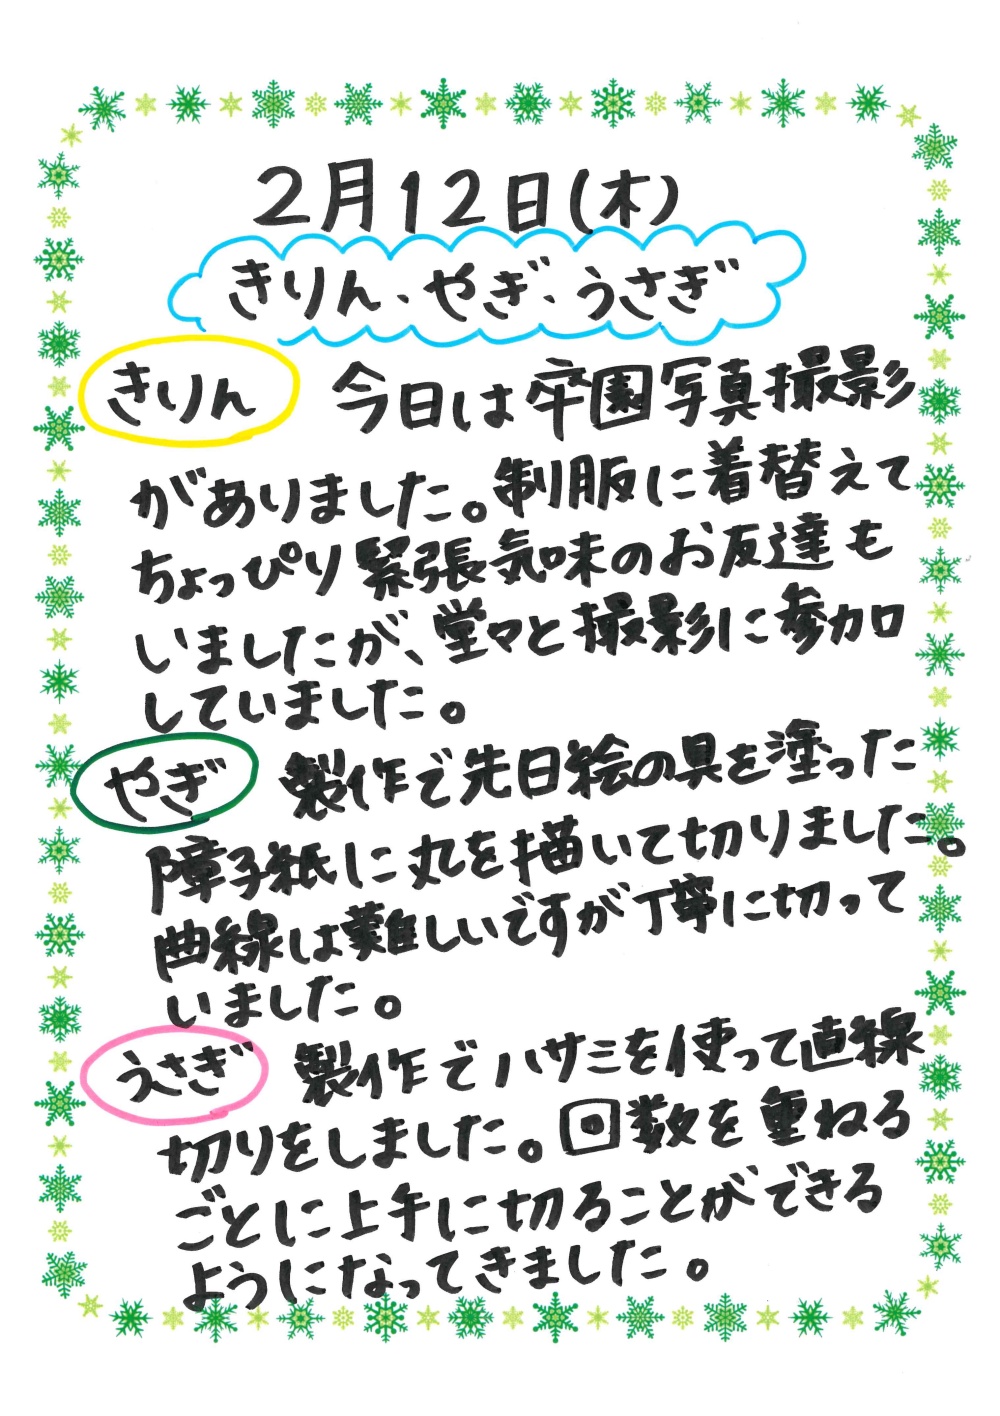 2月12日(木)
きりん、やぎ、うさぎ
きりん 今日は卒園写真撮影
がありました。制服に着替えて
ちょっぴり緊張気味のお友達も
いましたが、堂々と撮影に参加
していました。
やぎ 製作で先日絵の具を塗った
障子紙に丸を描いて切りました。
曲線は難しいですが丁寧に切って
いました。
うさぎ 製作でハサミを使って直線
切りをしました。回数を重ねる
ごとに上手に切ることができる
ようになってきました。